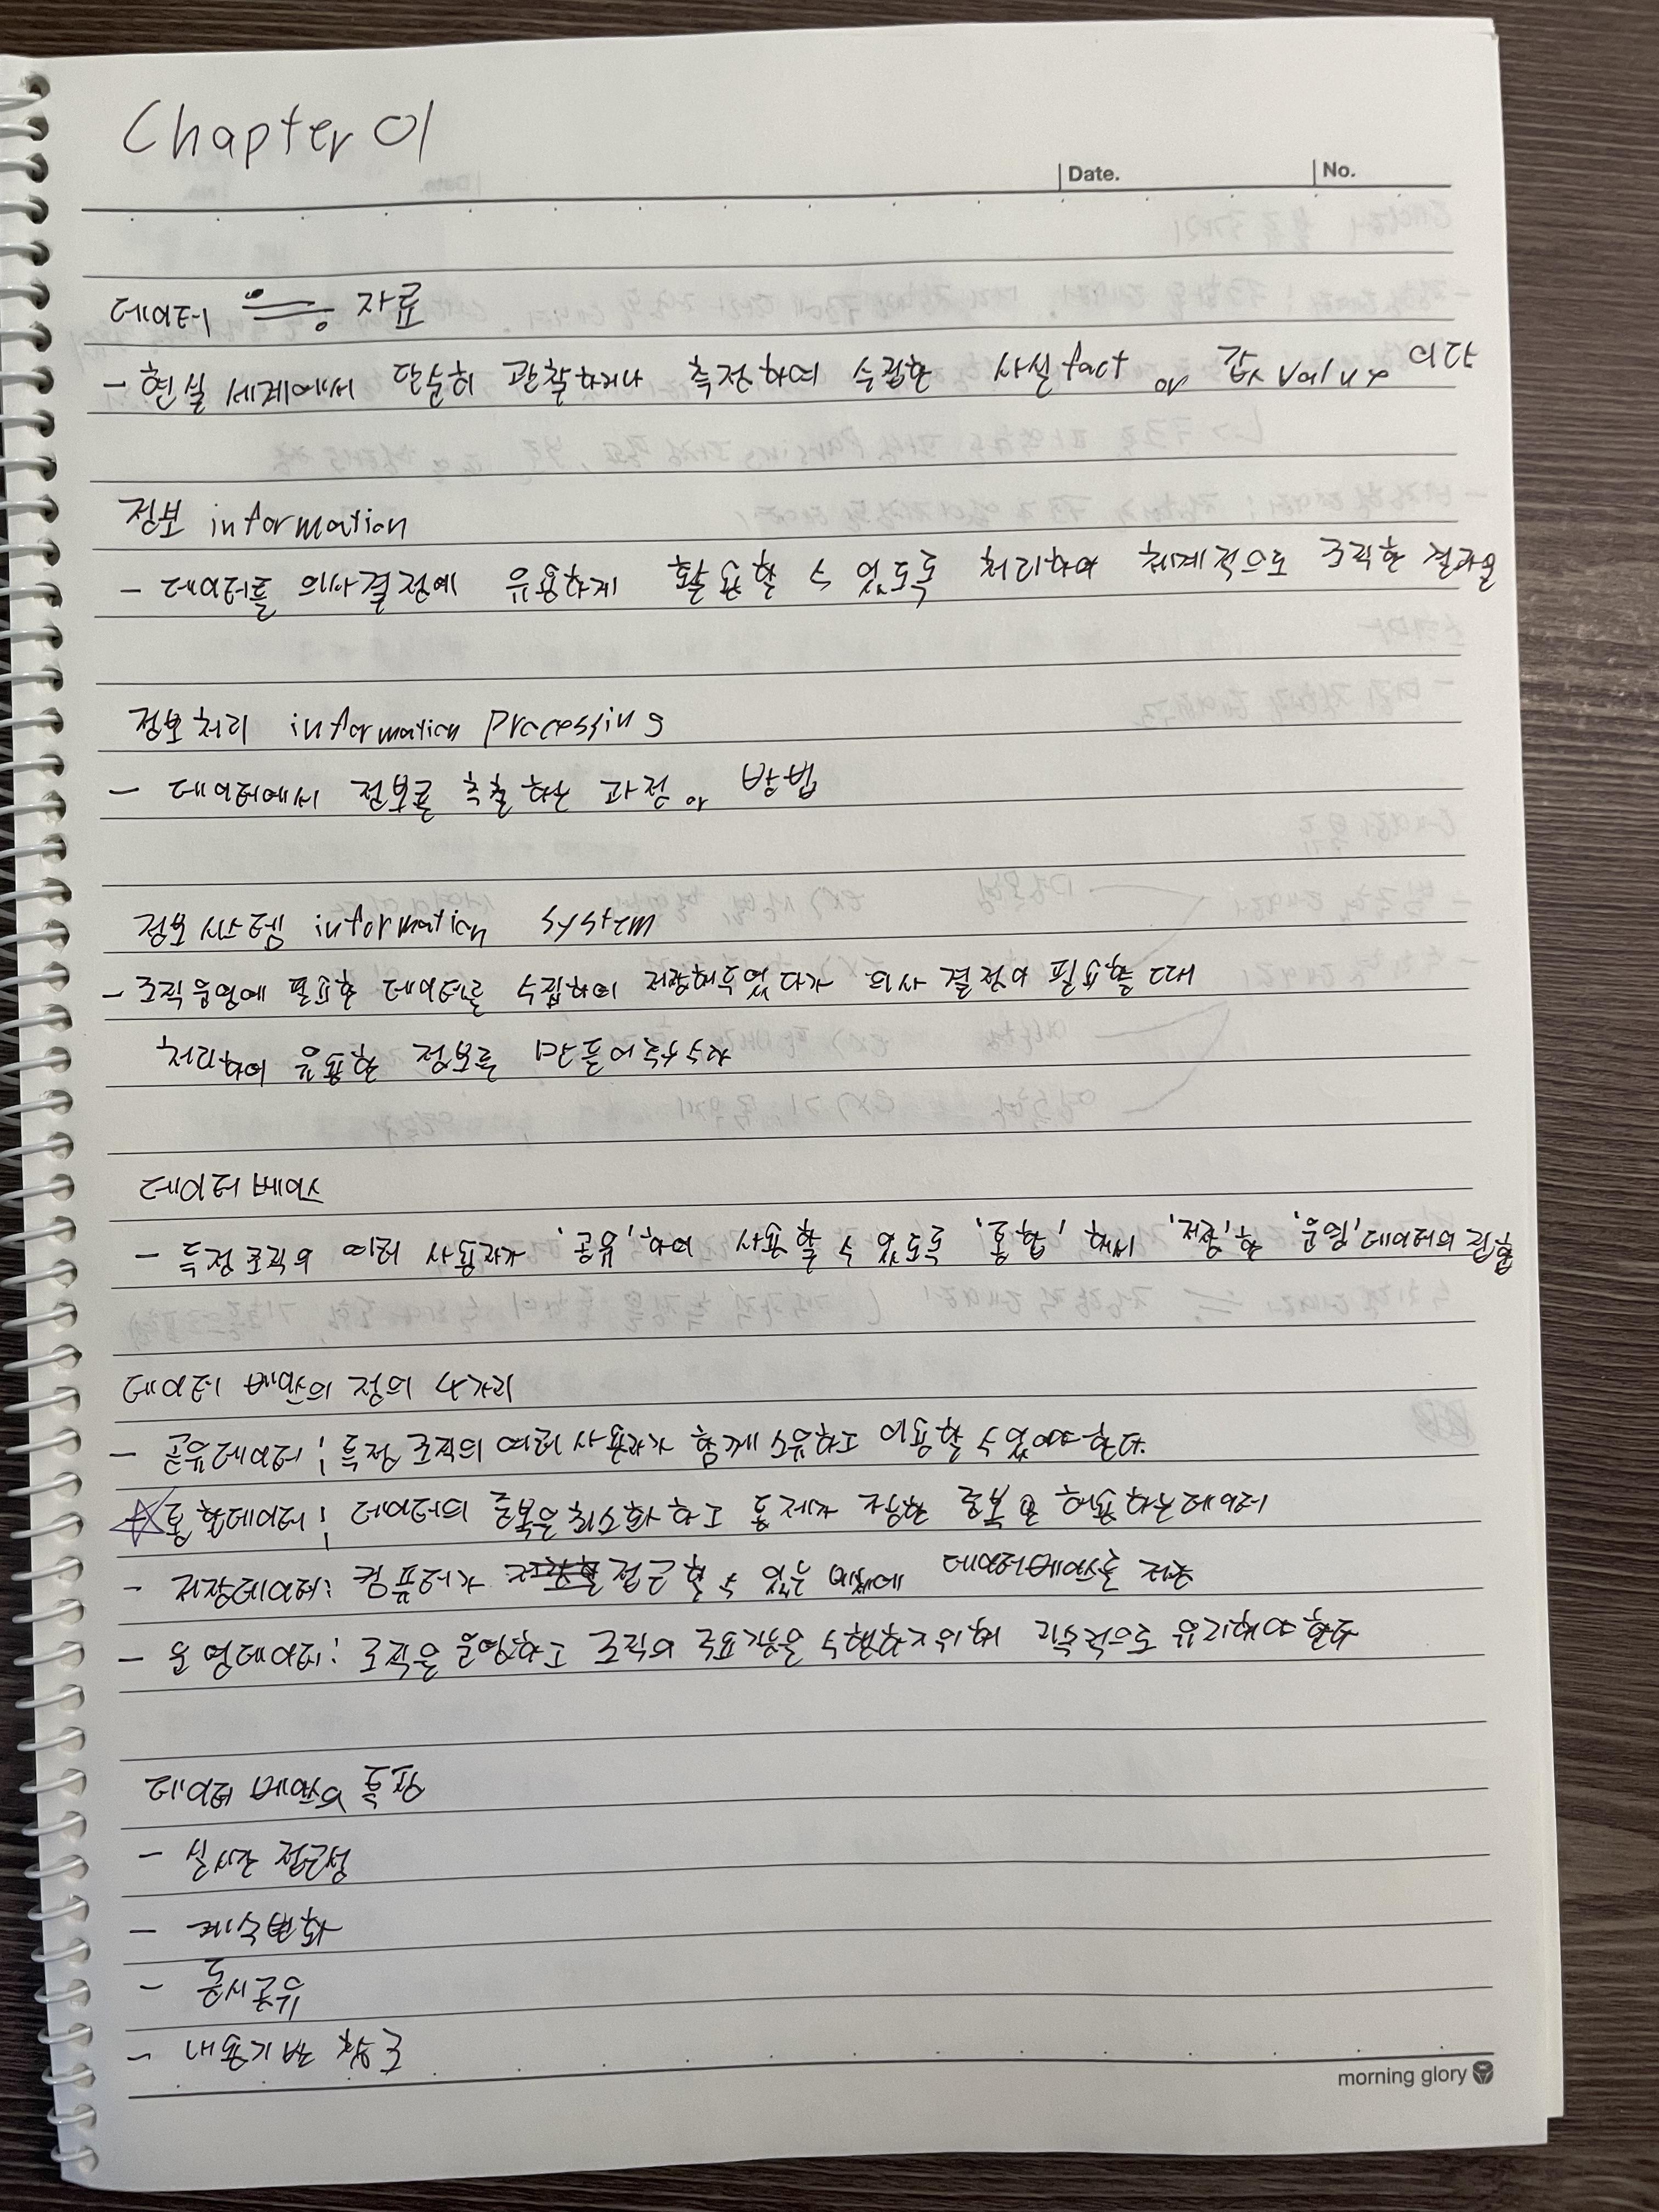 Chapter 01
Date. No.
데이터 ≒ 자료
- 현실 세계에서 단순히 관찰하거나 측정하여 수집한 사실 fact or 값 value 이다
정보 information
- 데이터를 의사결정에 유용하게 활용할 수 있도록 처리하여 체계적으로 조직한 결과물
정보처리 information processing
- 데이터에서 정보를 추출하는 과정 or 방법
정보 시스템 information system
- 조직운영에 필요한 데이터를 수집하여 저장해두었다가 의사 결정이 필요할 때
처리하여 유용한 정보를 만들어주는수단
데이터 베이스
- 특정조직의 여러 사용자가 '공유'하여 사용할 수 있도록 '통합' 해서 '저장'한 '운영' 데이터의 집합
데이터 베이스의 정의 4가지
- 공유데이터 : 특정 조직의 여러 사용자가 함께 소유하고 이용할 수 있어야 한다.
☆ 통합데이터 : 데이터의 중복을 최소화 하고 통제가 가능한 중복만 허용하는데이터
- 저장데이터 : 컴퓨터가 접근할 수 있는 매체에 데이터베이스를 저장
- 운영데이터 : 조직을 운영하고 조직의 주요기능을 수행하기위해 지속적으로 유지해야 한다
데이터 베이스의 특징
- 실시간 접근성
- 계속변화
- 동시공유
- 내용기반 참조
morning glory